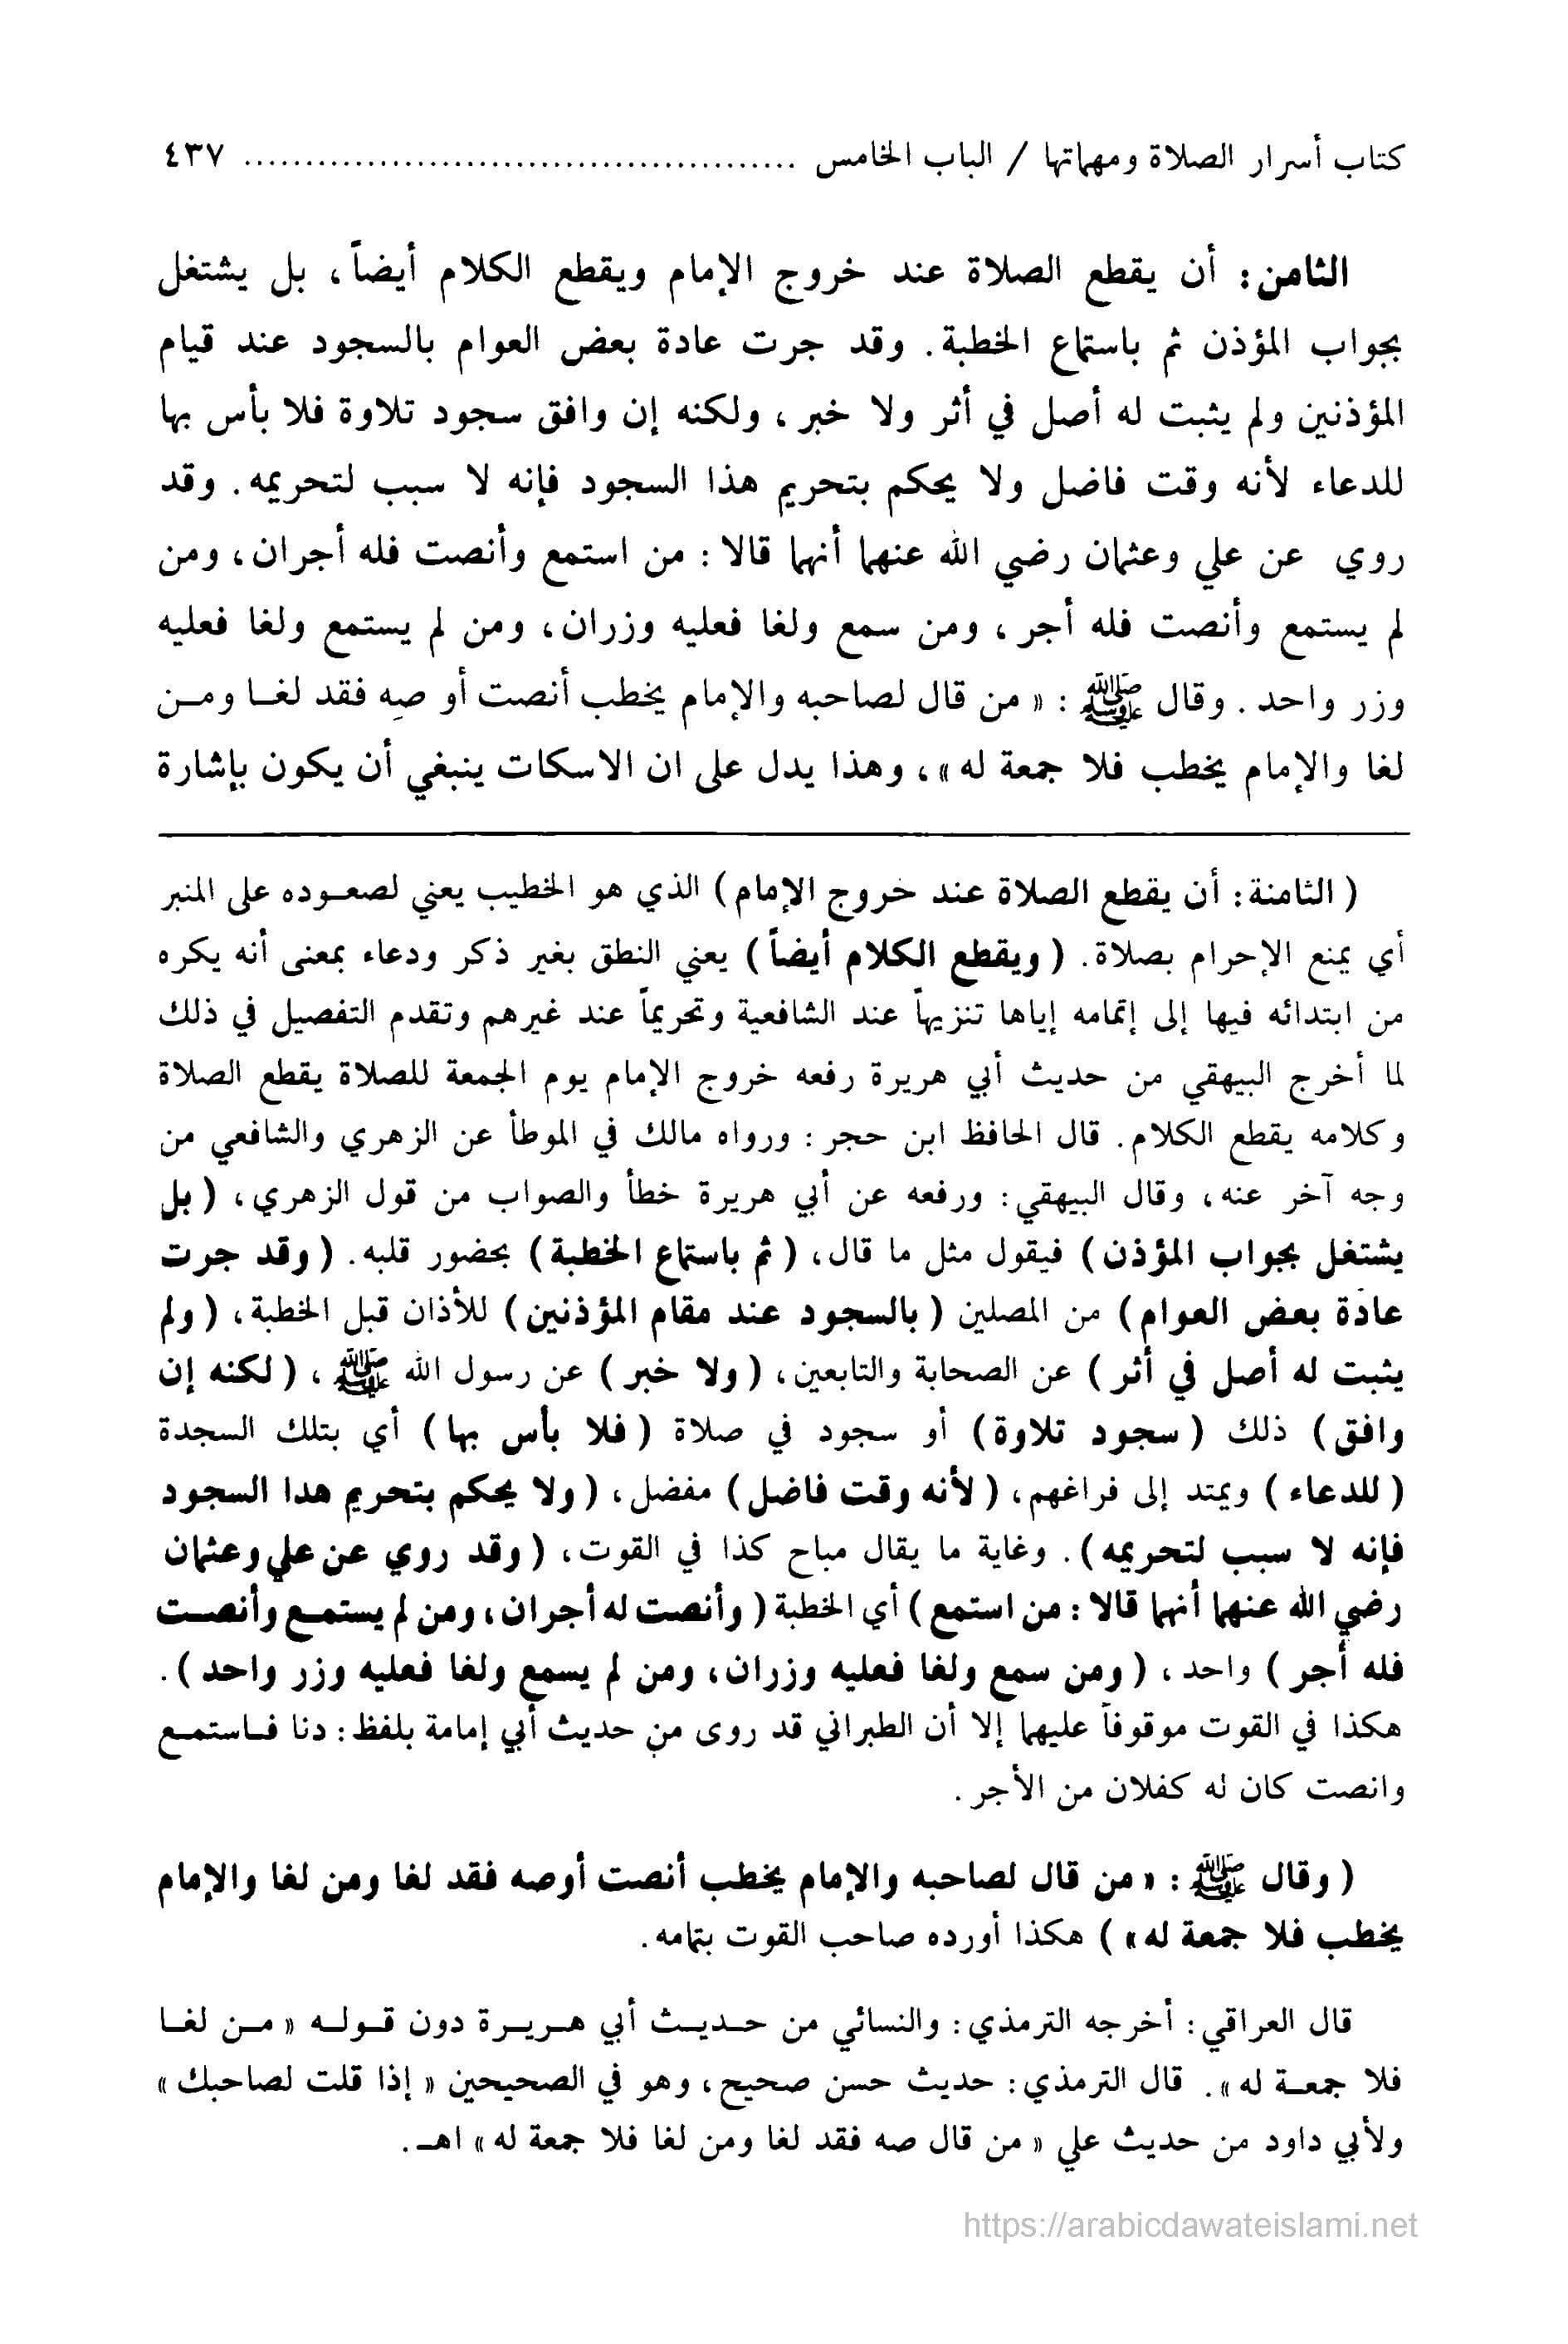 كتاب أسرار الصلاة ومهماتها / الباب الخامس ............................................. ٤٣٧
الثامن: أن يقطع الصلاة عند خروج الإمام ويقطع الكلام أيضاً، بل يشتغل
بجواب المؤذن ثم باستماع الخطبة. وقد جرت عادة بعض العوام بالسجود عند قيام
المؤذنين ولم يثبت له أصل في أثر ولا خبر، ولكنه إن وافق سجود تلاوة فلا بأس بها
للدعاء لأنه وقت فاضل ولا يحكم بتحريم هذا السجود فإنه لا سبب لتحريمه. وقد
روي عن علي وعثمان رضي الله عنهما أنهما قالا: من استمع وأنصت فله أجران، ومن
لم يستمع وأنصت فله أجر، ومن سمع ولغا فعليه وزران، ومن لم يستمع ولغا فعليه
وزر واحد. وقال ﷺ: « من قال لصاحبه والإمام يخطب أنصت أو صِه فقد لغا ومن
لغا والإمام يخطب فلا جمعة له »، وهذا يدل على ان الاسكات ينبغي أن يكون بإشارة
( الثامنة: أن يقطع الصلاة عند خروج الإمام) الذي هو الخطيب يعني لصعوده على المنبر
أي يمنع الإحرام بصلاة. ( ويقطع الكلام أيضاً) يعني النطق بغير ذكر ودعاء بمعنى أنه يكره
من ابتدائه فيها إلى إتمامه إياها تنزيهاً عند الشافعية وتحريماً عند غيرهم وتقدم التفصيل في ذلك
لما أخرج البيهقي من حديث أبي هريرة رفعه خروج الإمام يوم الجمعة للصلاة يقطع الصلاة
وكلامه يقطع الكلام. قال الحافظ ابن حجر: ورواه مالك في الموطأ عن الزهري والشافعي من
وجه آخر عنه، وقال البيهقي: ورفعه عن أبي هريرة خطأ والصواب من قول الزهري، ( بل
يشتغل بجواب المؤذن) فيقول مثل ما قال، ( ثم باستماع الخطبة) بحضور قلبه. ( وقد جرت
عادة بعض العوام) من المصلين ( بالسجود عند مقام المؤذنين) للأذان قبل الخطبة، ( ولم
يثبت له أصل في أثر) عن الصحابة والتابعين، ( ولا خبر) عن رسول الله ﷺ، ( لكنه إن
وافق) ذلك ( سجود تلاوة) أو سجود في صلاة ( فلا بأس بها) أي بتلك السجدة
( للدعاء) ويمتد إلى فراغهم، ( لأنه وقت فاضل) مفضل، ( ولا يحكم بتحريم هدا السجود
فإنه لا سبب لتحريمه). وغاية ما يقال مباح كذا في القوت، ( وقد روي عن علي وعثمان
رضي الله عنهما أنهما قالا: من استمع) أي الخطبة ( وأنصت له أجران، ومن لم يستمع وأنصت
فله أجر) واحد، ( ومن سمع ولغا فعليه وزران، ومن لم يسمع ولغا فعليه وزر واحد).
هكذا في القوت موقوفاً عليهما إلا أن الطبراني قد روى من حديث أبي إمامة بلفظ: دنا فاستمع
وانصت كان له كفلان من الأجر.
( وقال ﷺ: « من قال لصاحبه والإمام يخطب أنصت أوصه فقد لغا ومن لغا والإمام
يخطب فلا جمعة له» ) هكذا أورده صاحب القوت بتمامه.
قال العراقي: أخرجه الترمذي: والنسائي من حديث أبي هريرة دون قوله « من لغا
فلا جمعة له». قال الترمذي: حديث حسن صحيح، وهو في الصحيحين « إذا قلت لصاحبك »
ولأبي داود من حديث علي « من قال صه فقد لغا ومن لغا فلا جمعة له» اهـ.
https://arabicdawateislami.net